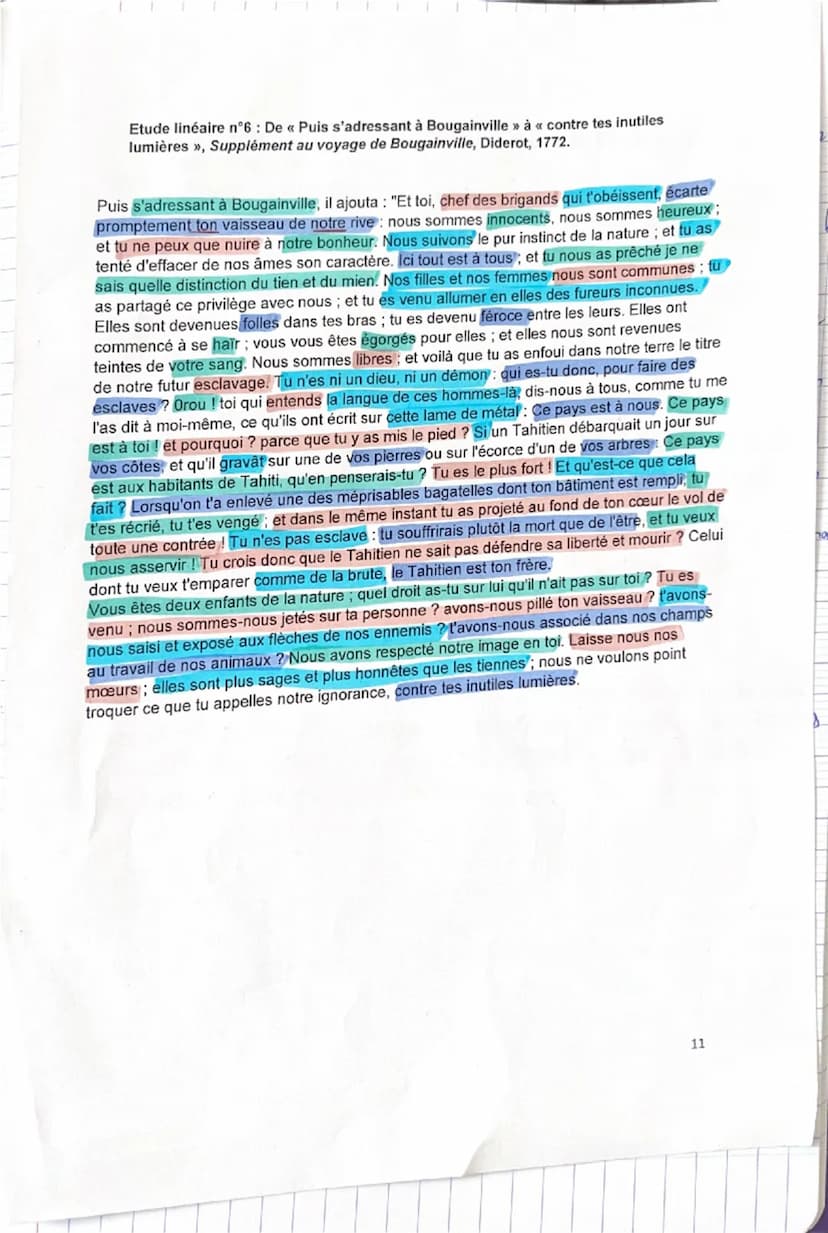 Etude linéaire n°6 : De « Puis s'adressant à Bougainville » à « contre tes inutiles
lumières », Supplément au voyage de Bougainville, Diderot, 1772.
Puis s'adressant à Bougainville, il ajouta : "Et toi, chef des brigands qui t'obéissent, écarte
promptement ton vaisseau de notre rive : nous sommes innocents, nous sommes heureux ;
et tu ne peux que nuire à notre bonheur. Nous suivons le pur instinct de la nature ; et tu as
tenté d'effacer de nos âmes son caractère. Ici tout est à tous ; et tu nous as prêché je ne
sais quelle distinction du tien et du mien. Nos filles et nos femmes nous sont communes ; tu
as partagé ce privilège avec nous ; et tu es venu allumer en elles des fureurs inconnues.
Elles sont devenues folles dans tes bras ; tu es devenu féroce entre les leurs. Elles ont
commencé à se haïr ; vous vous êtes égorgés pour elles ; et elles nous sont revenues
teintes de votre sang. Nous sommes libres ; et voilà que tu as enfoui dans notre terre le titre
de notre futur esclavage. Tu n'es ni un dieu, ni un démon : qui es-tu donc, pour faire des
esclaves ? Orou ! toi qui entends la langue de ces hommes-là, dis-nous à tous, comme tu me
l'as dit à moi-même, ce qu'ils ont écrit sur cette lame de métal : Ce pays est à nous. Ce pays
est à toi ! et pourquoi ? parce que tu y as mis le pied ? Si un Tahitien débarquait un jour sur
vos côtes, et qu'il gravât sur une de vos pierres ou sur l'écorce d'un de vos arbres : Ce pays
est aux habitants de Tahiti, qu'en penserais-tu ? Tu es le plus fort ! Et qu'est-ce que cela
fait ? Lorsqu'on t'a enlevé une des méprisables bagatelles dont ton bâtiment est rempli, tu
t'es récrié, tu t'es vengé ; et dans le même instant tu as projeté au fond de ton cœur le vol de
toute une contrée ! Tu n'es pas esclave : tu souffrirais plutôt la mort que de l'être, et tu veux
nous asservir ! Tu crois donc que le Tahitien ne sait pas défendre sa liberté et mourir ? Celui
dont tu veux t'emparer comme de la brute, le Tahitien est ton frère.
Vous êtes deux enfants de la nature ; quel droit as-tu sur lui qu'il n'ait pas sur toi ? Tu es
venu ; nous sommes-nous jetés sur ta personne ? avons-nous pillé ton vaisseau ? t'avons-
nous saisi et exposé aux flèches de nos ennemis ? t'avons-nous associé dans nos champs
au travail de nos animaux ? Nous avons respecté notre image en toi. Laisse nous nos
mœurs ; elles sont plus sages et plus honnêtes que les tiennes ; nous ne voulons point
troquer ce que tu appelles notre ignorance, contre tes inutiles lumières.
11